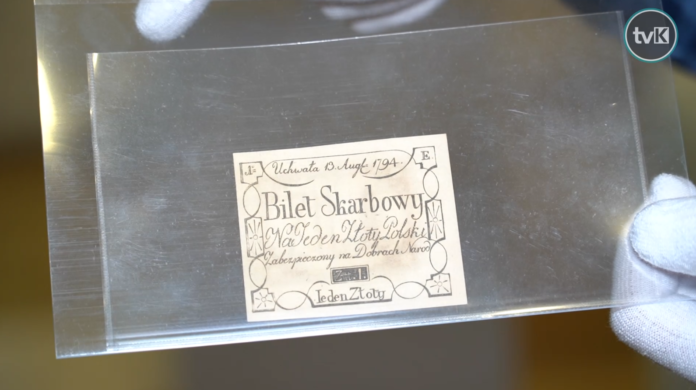 tvK
.I. Uchwała 13. Augt. 1794. E.
Bilet Skarbowy
Na Jeden Złoty Polski
Zabezpieczony na Dobrach Narod
Jeden Złoty